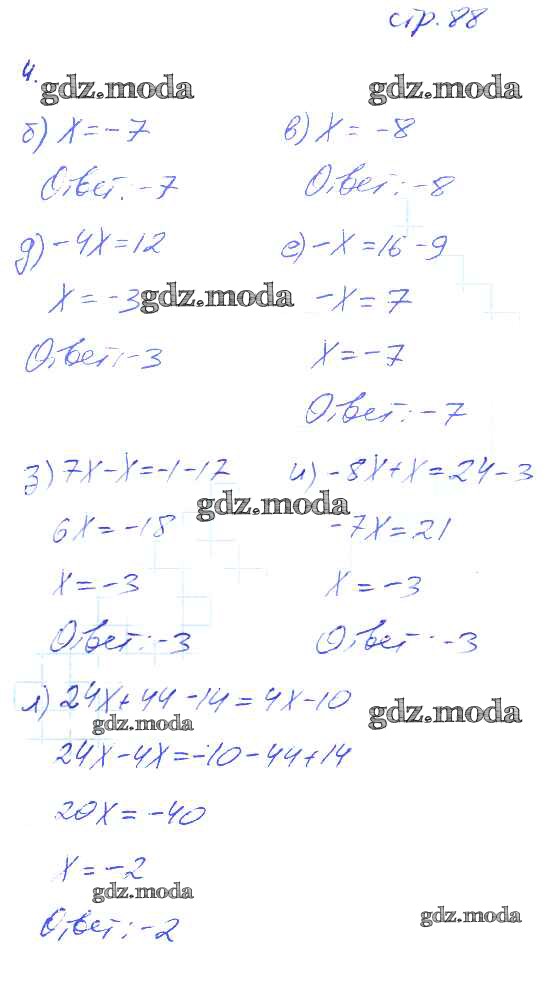 стр. 88
4.
gdz.moda gdz.moda
б) x = -7 в) x = -8
Ответ: -7 Ответ: -8
д) -4x = 12 е) -x = 16 - 9
x = -3 gdz.moda -x = 7
Ответ: -3 x = -7
Ответ: -7
з) 7x - x = -1 - 17 и) -8x + x = 24 - 3
gdz.moda
6x = -18 -7x = 21
x = -3 x = -3
Ответ: -3 Ответ: -3
л) 24x + 44 - 14 = 4x - 10
gdz.moda gdz.moda
24x - 4x = -10 - 44 + 14
20x = -40
x = -2
gdz.moda
Ответ: -2 gdz.moda